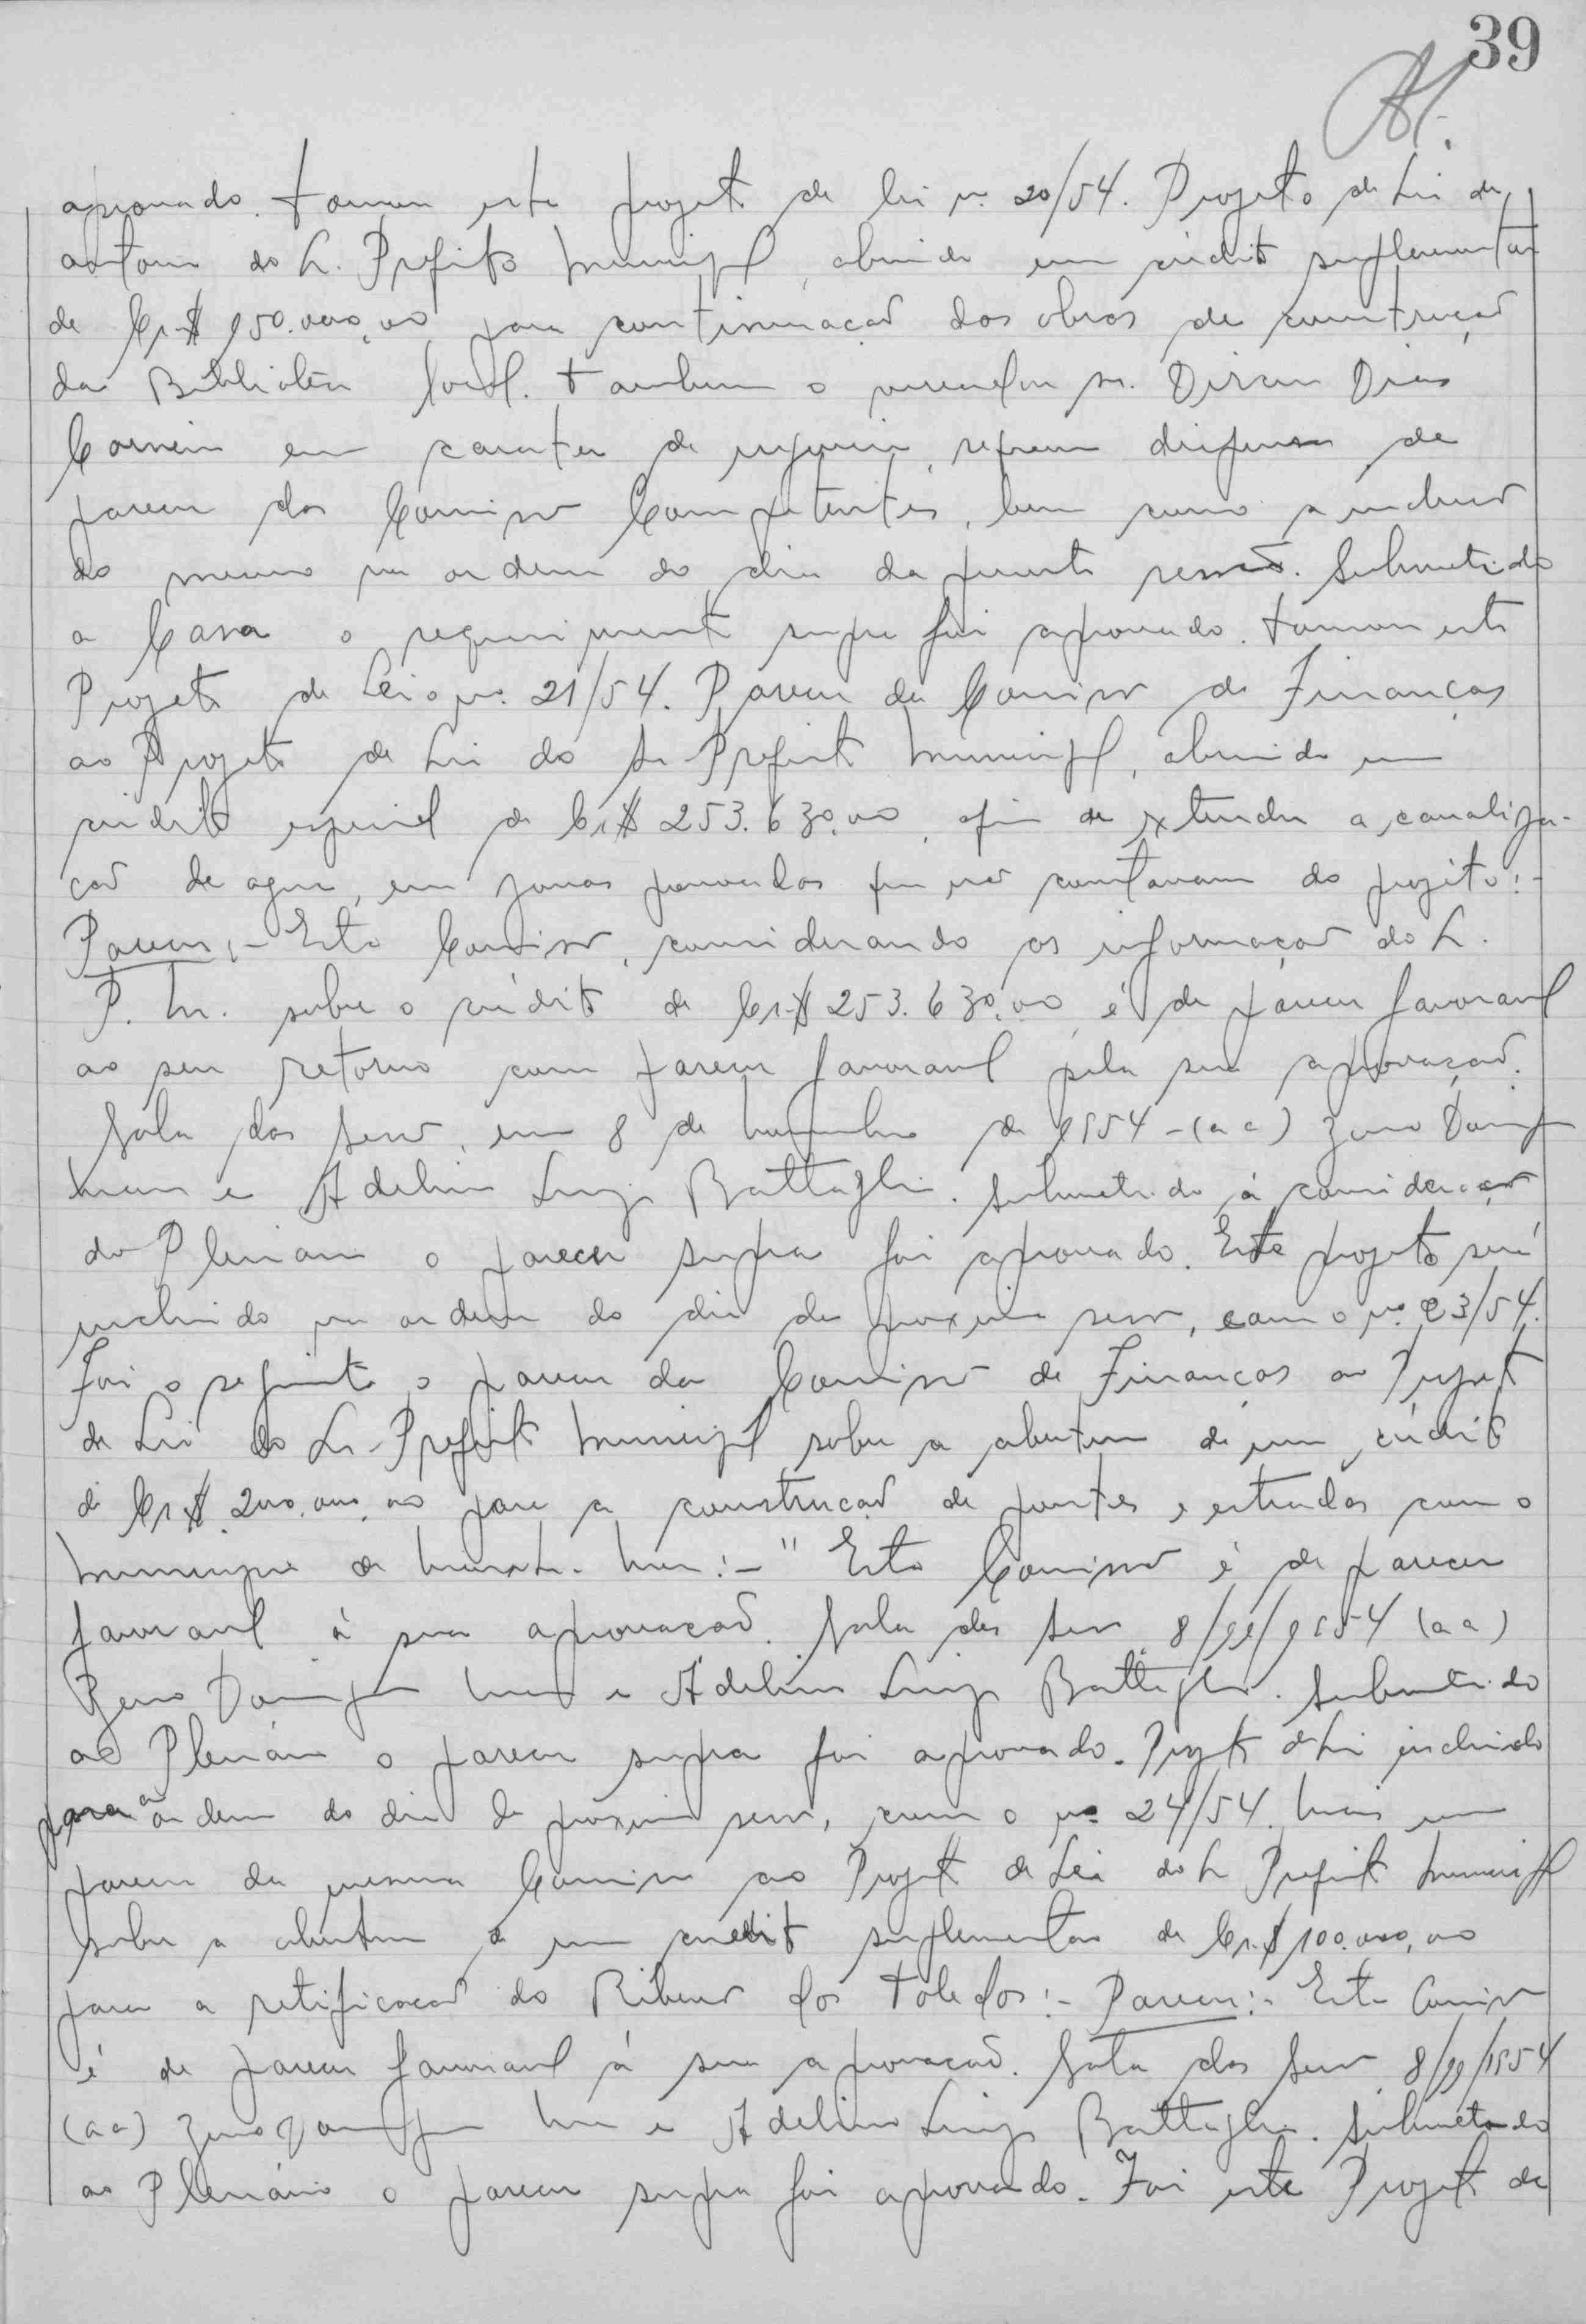 39
aprovado. Tomou este projeto de lei nº 20/54. Projeto de Lei de
autoria do Sr. Prefeito Municipal, abrindo um crédito suplementar
de Cr$ 150.000,00 para continuação das obras de construção
da Biblioteca local. Tambem o vereador sr. Dirceu Dias
Carneiro em carater de urgencia, requereu dispensa de
parecer das Comissão Competentes, bem como a inclusão
do mesmo na ordem do dia da presente sessão. Submetido
a Casa o requerimento supra foi aprovado. Tomou este
Projeto de Lei o nº 21/54. Parecer da Comissão de Finanças
ao Projeto de Lei do Sr. Prefeito Municipal, abrindo um
crédito especial de Cr$ 253.630,00, afim de extender a canaliza-
ção de agua, em zonas povoadas que não constavam do projeto:-
Parecer:- Esta Comissão, considerando as informação do Sr.
P. M. sobre o crédito de Cr$ 253.630,00 é de parecer favoravel
ao seu retorno com parecer favoravel pela sua aprovação.
Sala das Sessão, em 8 de Novembro de 1954 - (a a) Zeno
e Adelino Luiz Battaglia. Submetido à consideração
do Plenario o parecer supra foi aprovado. Este projeto será
incluido na ordem do dia da proxima sessão, com o nº 23/54.
Foi o seguinte o parecer da Comissão de Finanças ao Projeto
de Lei do Sr. Prefeito Municipal sobre a abertura de um crédito
de Cr$ 200.000,00 para a construção de pontes e estradas com o
Municipio de :- " Esta Comissão é de parecer
favoravel à sua aprovação. Sala das Sessão 8/11/1954 (a a)
Zeno e Adelino Luiz Battaglia. Submetido
ao Plenário o parecer supra foi aprovado. Projeto de Lei incluido
para a ordem do dia da próxima sessão, com o nº 24/54. Mais um
parecer da mesma Comissão ao Projeto de Lei do Sr. Prefeito Municipal
sobre a abertura de um credito suplementar de Cr.$ 100.000,00
para a retificação do Ribeirão dos Toledos:- Parecer:- Esta Comissão
é de parecer favoravel á sua aprovação. Sala das Sessão 8/11/1954
(a a) Zeno e Adelino Luiz Battaglia. Submetido
ao Plenário o parecer supra foi aprovado. Foi este Projeto de